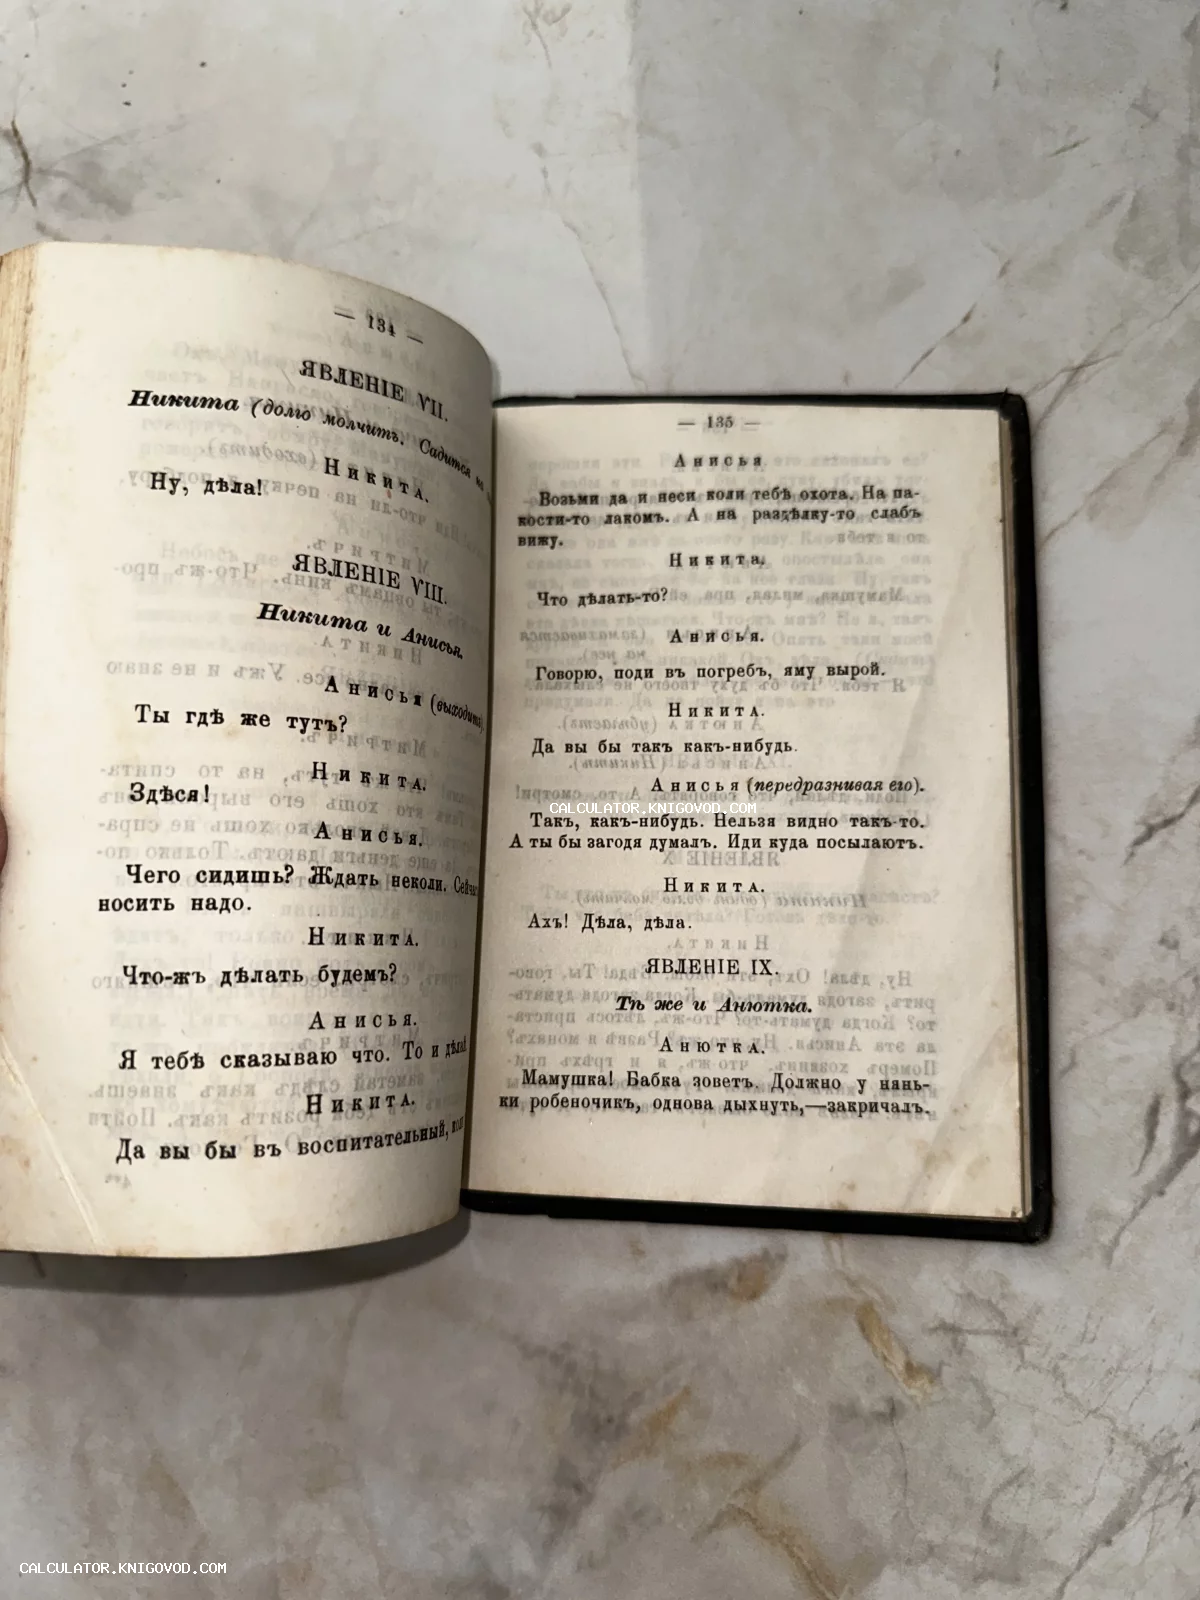 — 134 —
ЯВЛЕНІЕ VII.
Никита (долго молчитъ. Садится на
Никита.
Ну, дѣла!
ЯВЛЕНІЕ VIII.
Никита и Анисья.
Анисья (выходитъ).
Ты гдѣ же тутъ?
Никита.
Здѣся!
Анисья.
Чего сидишь? Ждать неколи. Сейчас
носить надо.
Никита.
Что-жъ дѣлать будемъ?
Анисья.
Я тебѣ сказываю что. То и дѣлай
Никита.
Да вы бы въ воспитательный,
— 135 —
Анисья
Возьми да и неси коли тебѣ охота. На па-
кости-то лакомъ. А на раздѣлку-то слабъ
вижу.
Никита.
Что дѣлать-то?
Анисья.
Говорю, поди въ погребъ, яму вырой.
Никита.
Да вы бы такъ какъ-нибудь.
Анисья (передразнивая его).
CALCULATOR.KNIGOVOD.COM
Такъ, какъ-нибудь. Нельзя видно такъ-то.
А ты бы загодя думалъ. Иди куда посылаютъ.
Никита.
Ахъ! Дѣла, дѣла.
ЯВЛЕНІЕ IX.
Тѣ же и Анютка.
Анютка.
Мамушка! Бабка зоветъ. Должно у нянь-
ки робеночикъ, однова дыхнуть,—закричалъ.
CALCULATOR.KNIGOVOD.COM